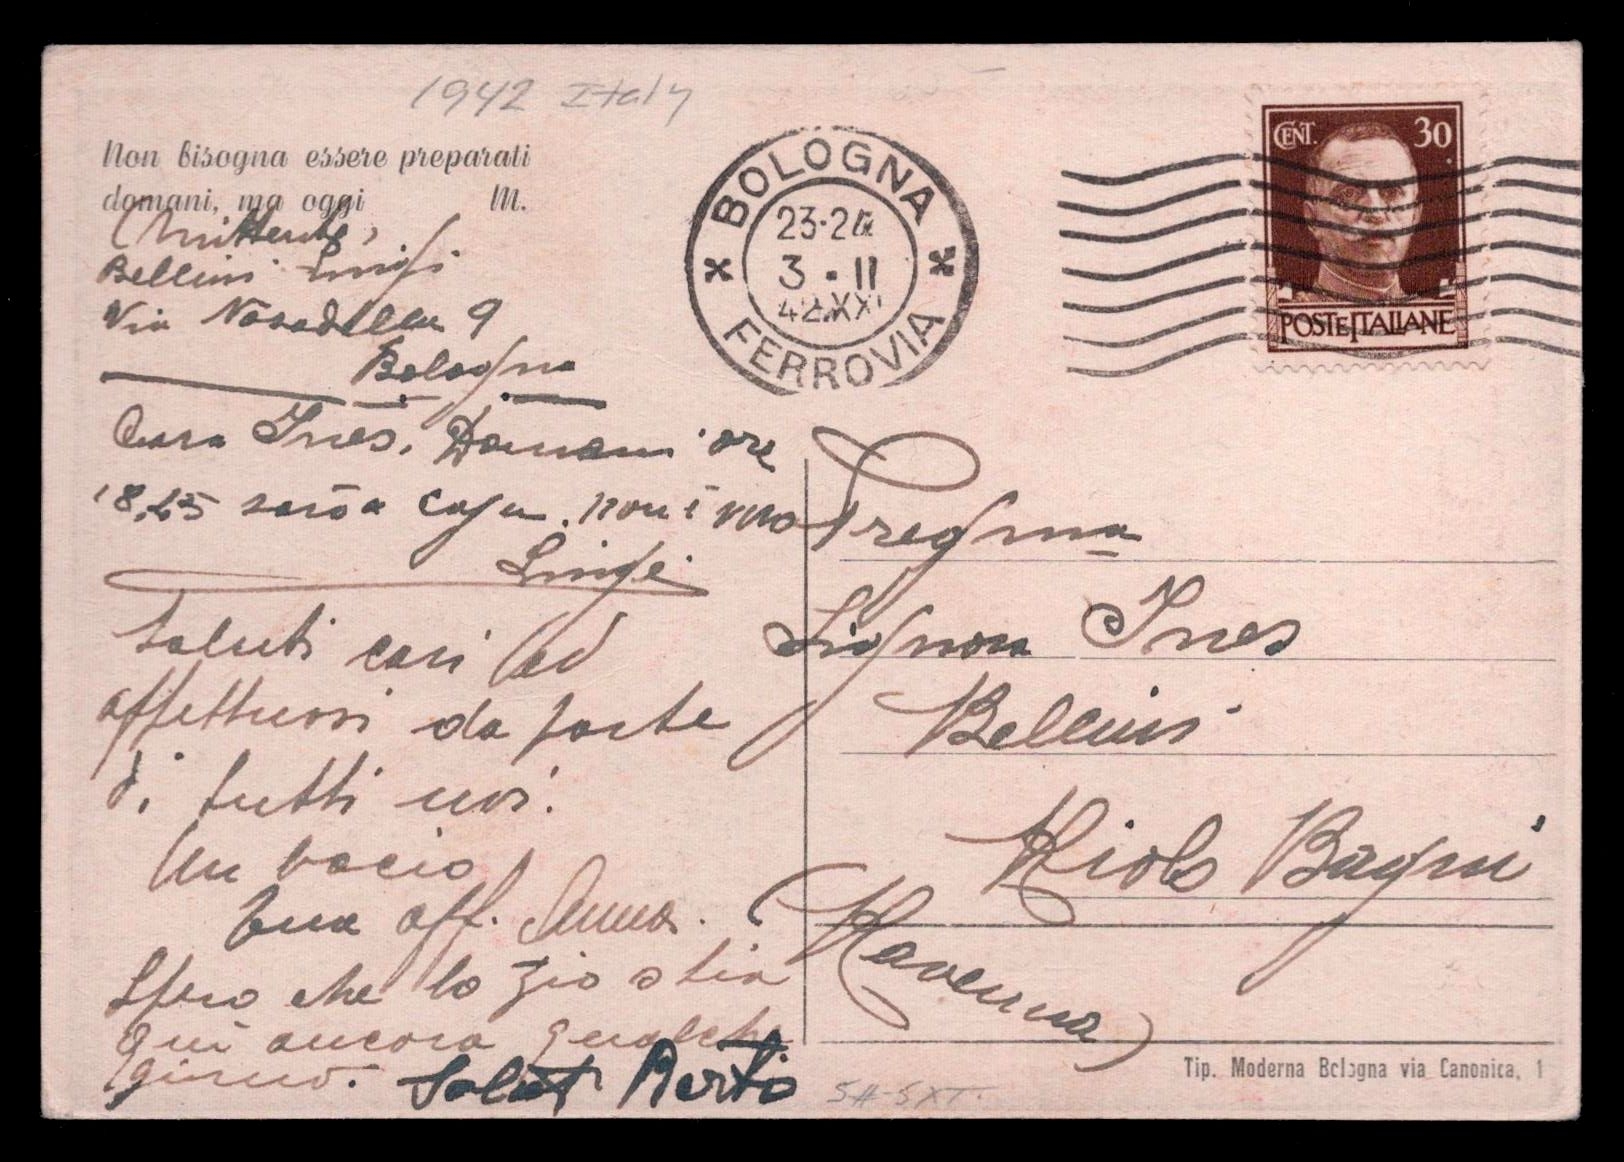 1942 Italy
Non bisogna essere preparati
domani, ma oggi M.
(Mittente)
Bellini Luigi
Via Nosadella 9
Bologna
Cara Ines. Domani ore
18,25 sarò a casa. non è vero
Luigi
Saluti cari ed
affettuosi da parte
di tutti noi.
Un bacio
tua aff. Anna.
Spero che lo zio stia
qui ancora qualche
giorno. Saluti Berto
BOLOGNA
23-24
3 · II
42.XXI
FERROVIA
CENT. 30
POSTE ITALIANE
Pregma
Signora Ines
Bellini
Riolo Bagni
(Ravenna)
Tip. Moderna Bologna via Canonica, 1